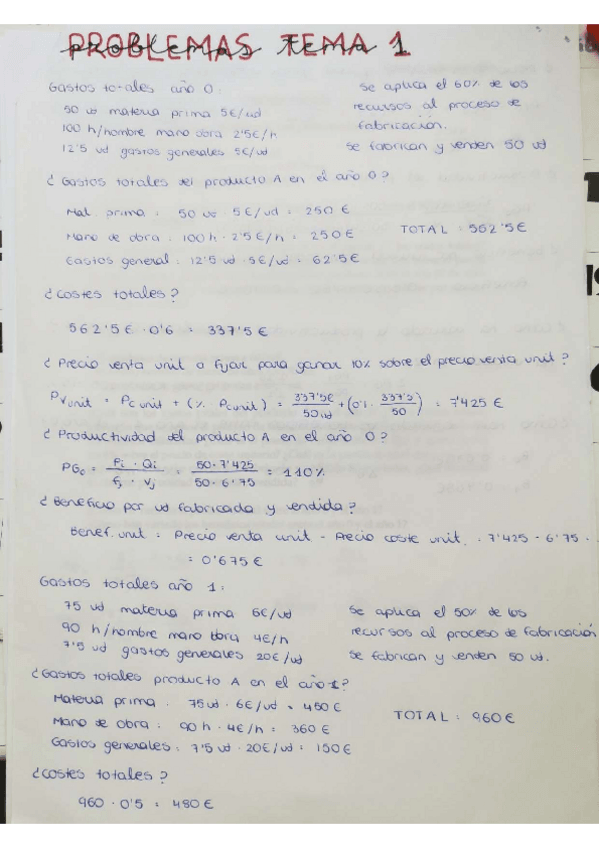 PROBLEMAS TEMA 1
Gastos totales año 0:
50 ud materia prima 5€/ud
100 h/hombre mano obra 2'5€/h
12'5 ud gastos generales 5€/ud
se aplica el 60% de los
recursos al proceso de
fabricación.
se fabrican y venden 50 ud
¿Gastos totales del producto A en el año 0?
Mat. prima : 50 ud · 5€/ud = 250 €
Mano de obra : 100h · 2'5€/h = 250€
Gastos general : 12'5 ud · 5€/ud = 62'5€
TOTAL : 562'5€
¿Costes totales?
562'5€ · 0'6 = 337'5€
¿Precio venta unit a fijar para ganar 10% sobre el precio venta unit?
Pv unit = Pc unit + (% Pc unit) = 337'5€/50ud + (0'1 · 337'5/50) = 7'425 €
¿Productividad del producto A en el año 0?
PG0 = Pi · Qi / fj · Vj = 50·7'425 / 50·6'75 = 110%
¿Beneficio por ud fabricada y vendida?
Benef. unit = Precio venta unit - Precio coste unit. = 7'425 - 6'75 =
= 0'675€
Gastos totales año 1:
75 ud materia prima 6€/ud
90 h/hombre mano obra 4€/h
7'5 ud gastos generales 20€/ud
se aplica el 50% de los
recursos al proceso de fabricación
se fabrican y venden 50 ud.
¿Gastos totales producto A en el año 1?
Materia prima : 75ud · 6€/ud = 450€
Mano de obra : 90h · 4€/h = 360€
Gastos generales : 7'5 ud · 20€/ud = 150€
TOTAL : 960€
¿Costes totales?
960 · 0'5 = 480€